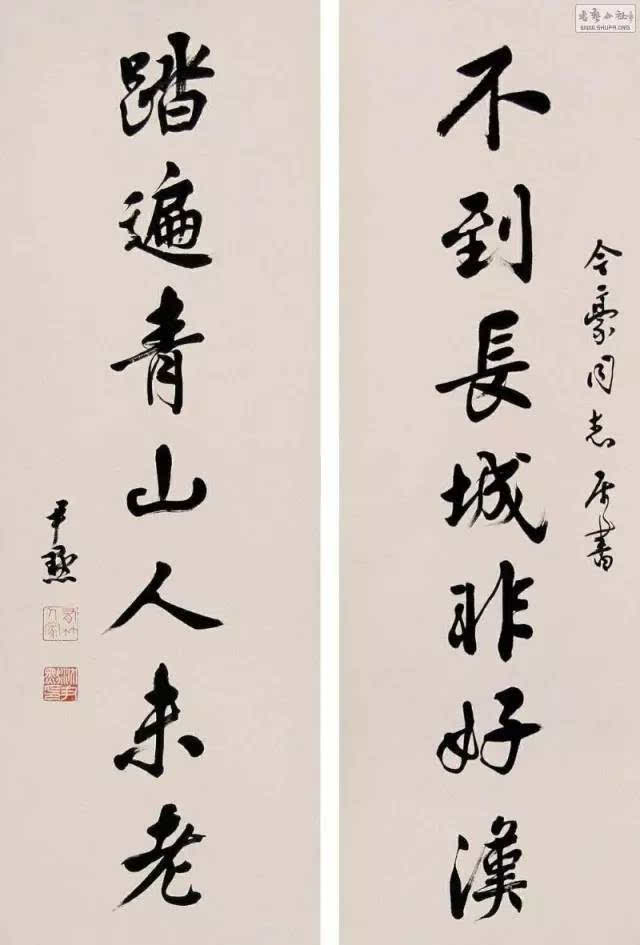 不到長城非好漢
令豪同志屬書
踏遍青山人未老
尹默
沈尹默印